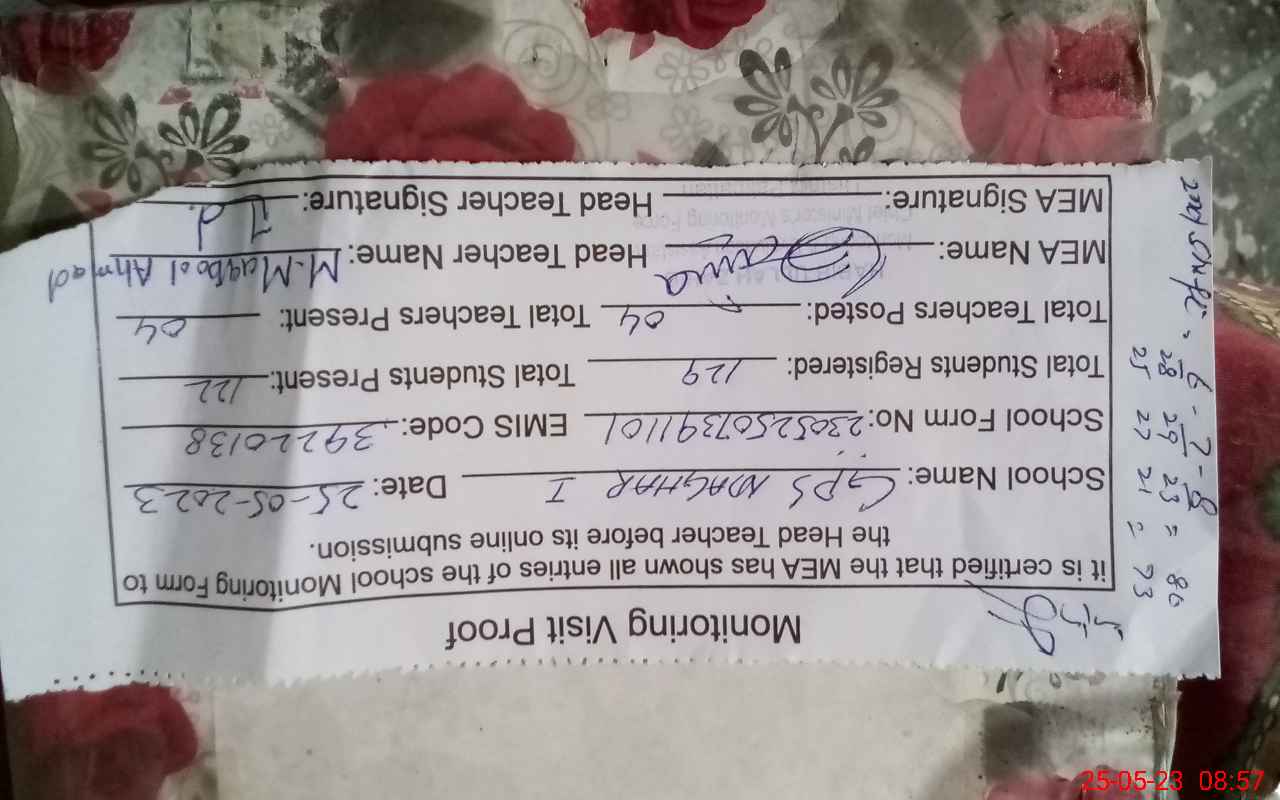 Monitoring Visit Proof
it is certified that the MEA has shown all entries of the school Monitoring Form to
the Head Teacher before its online submission.
School Name: GPS MAGHAR I Date: 25-05-2023
School Form No: 23052507391101 EMIS Code: 39220138
Total Students Registered: 129 Total Students Present: 122
Total Teachers Posted: 04 Total Teachers Present: 04
MEA Name: Head Teacher Name: M. Maqbool Ahmad
MEA Signature: Head Teacher Signature:
6 - 7 - 8
28 29 23 = 80
25 27 21 = 73
25-05-23 08:57